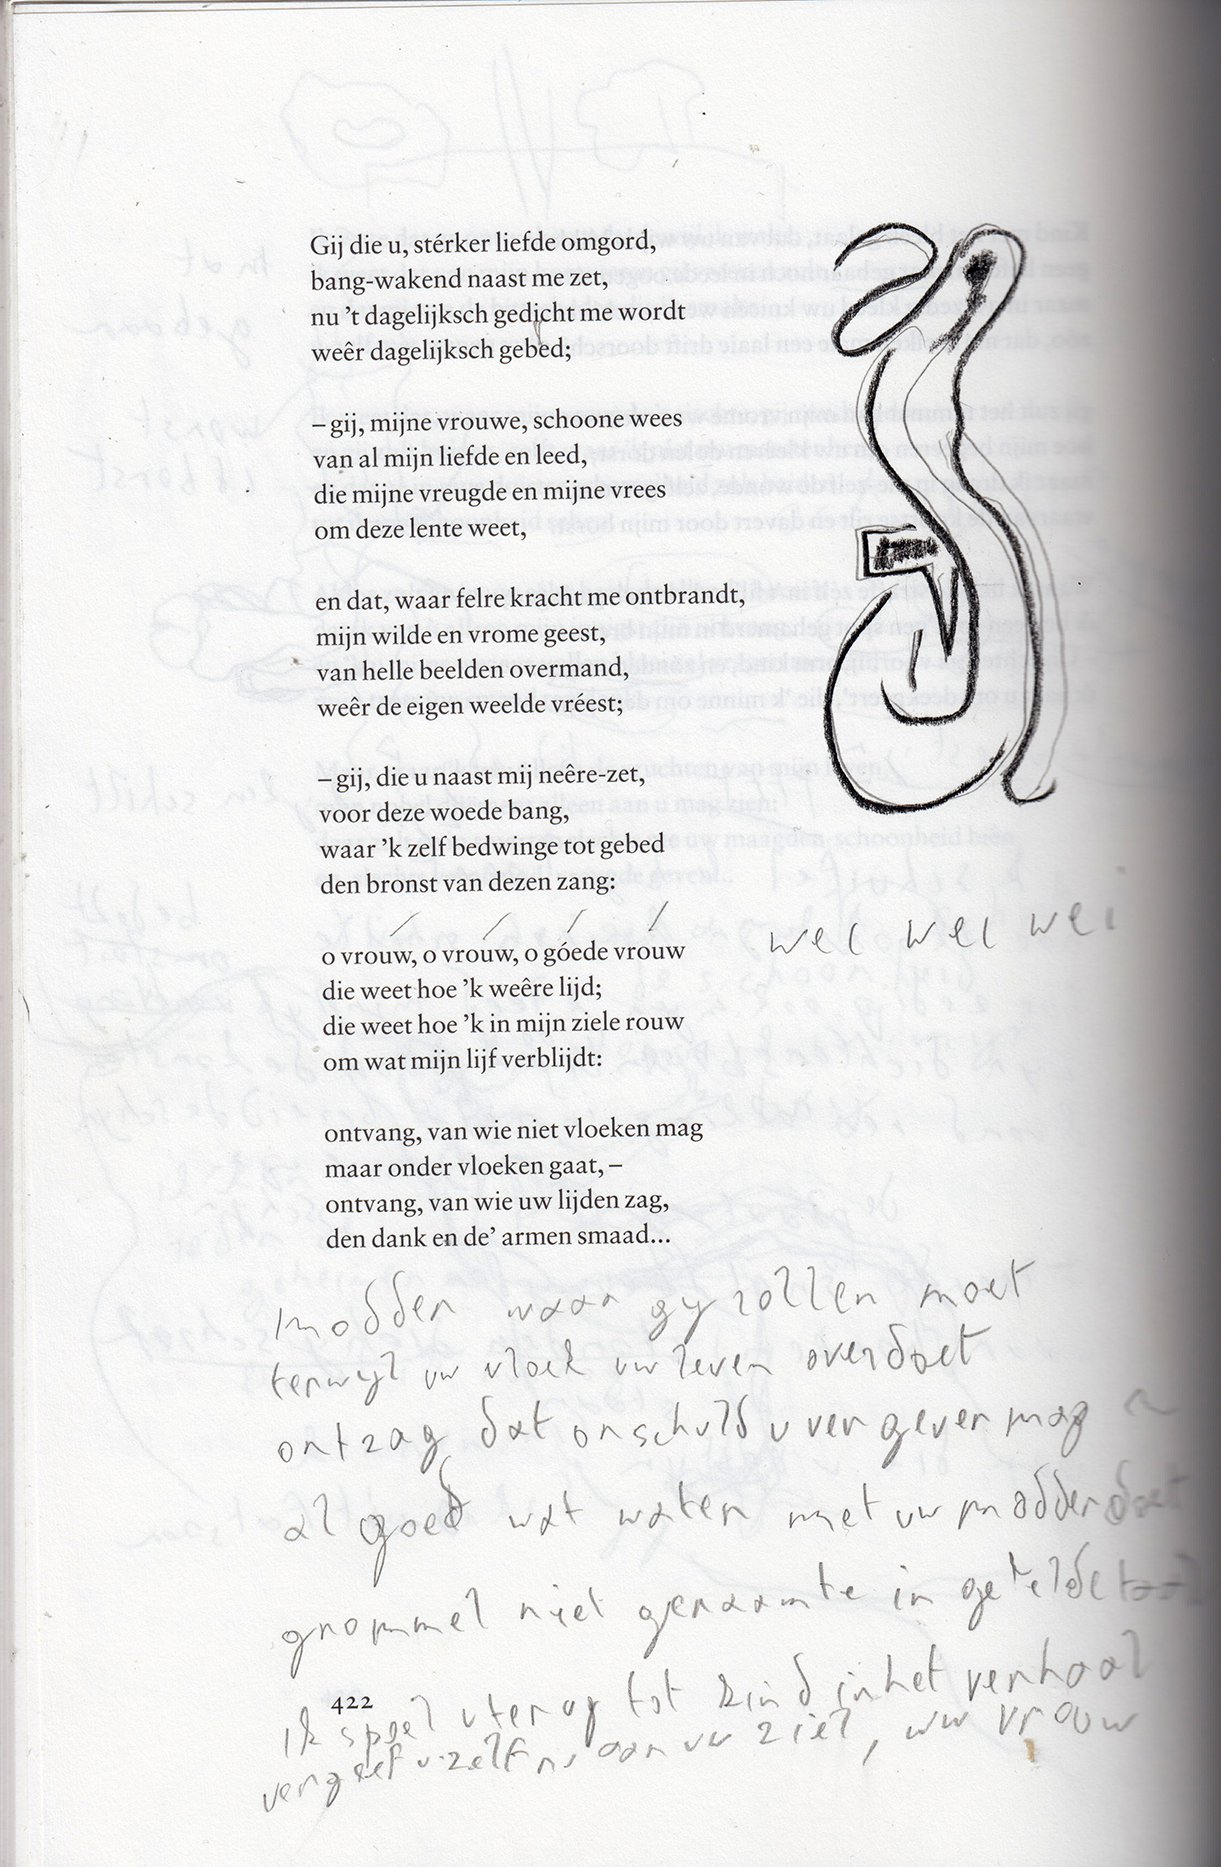 Gij die u, stérker liefde omgord,
bang-wakend naast me zet,
nu ’t dagelijksch gedicht me wordt
weêr dagelijksch gebed;
– gij, mijne vrouwe, schoone wees
van al mijn liefde en leed,
die mijne vreugde en mijne vrees
om deze lente weet,
en dat, waar felre kracht me ontbrandt,
mijn wilde en vrome geest,
van helle beelden overmand,
weêr de eigen weelde vréest;
– gij, die u naast mij neêre-zet,
voor deze woede bang,
waar ’k zelf bedwinge tot gebed
den bronst van dezen zang:
o vrouw, o vrouw, o góede vrouw
wel wel wel
die weet hoe ’k weêre lijd;
die weet hoe ’k in mijn ziele rouw
om wat mijn lijf verblijdt:
ontvang, van wie niet vloeken mag
maar onder vloeken gaat, –
ontvang, van wie uw lijden zag,
den dank en de’ armen smaad...
modder waar gy rollen moet
terwyl uw vloek uw leven overdoet
ontzag dat onschuld u vergeven mag
al goed wat water met uw modder doet
grommel niet geraamte in getelde taal
ik speel u terug tot kind in het verhaal
422
vergeef uzelf nu aan uw ziel, uw vrouw